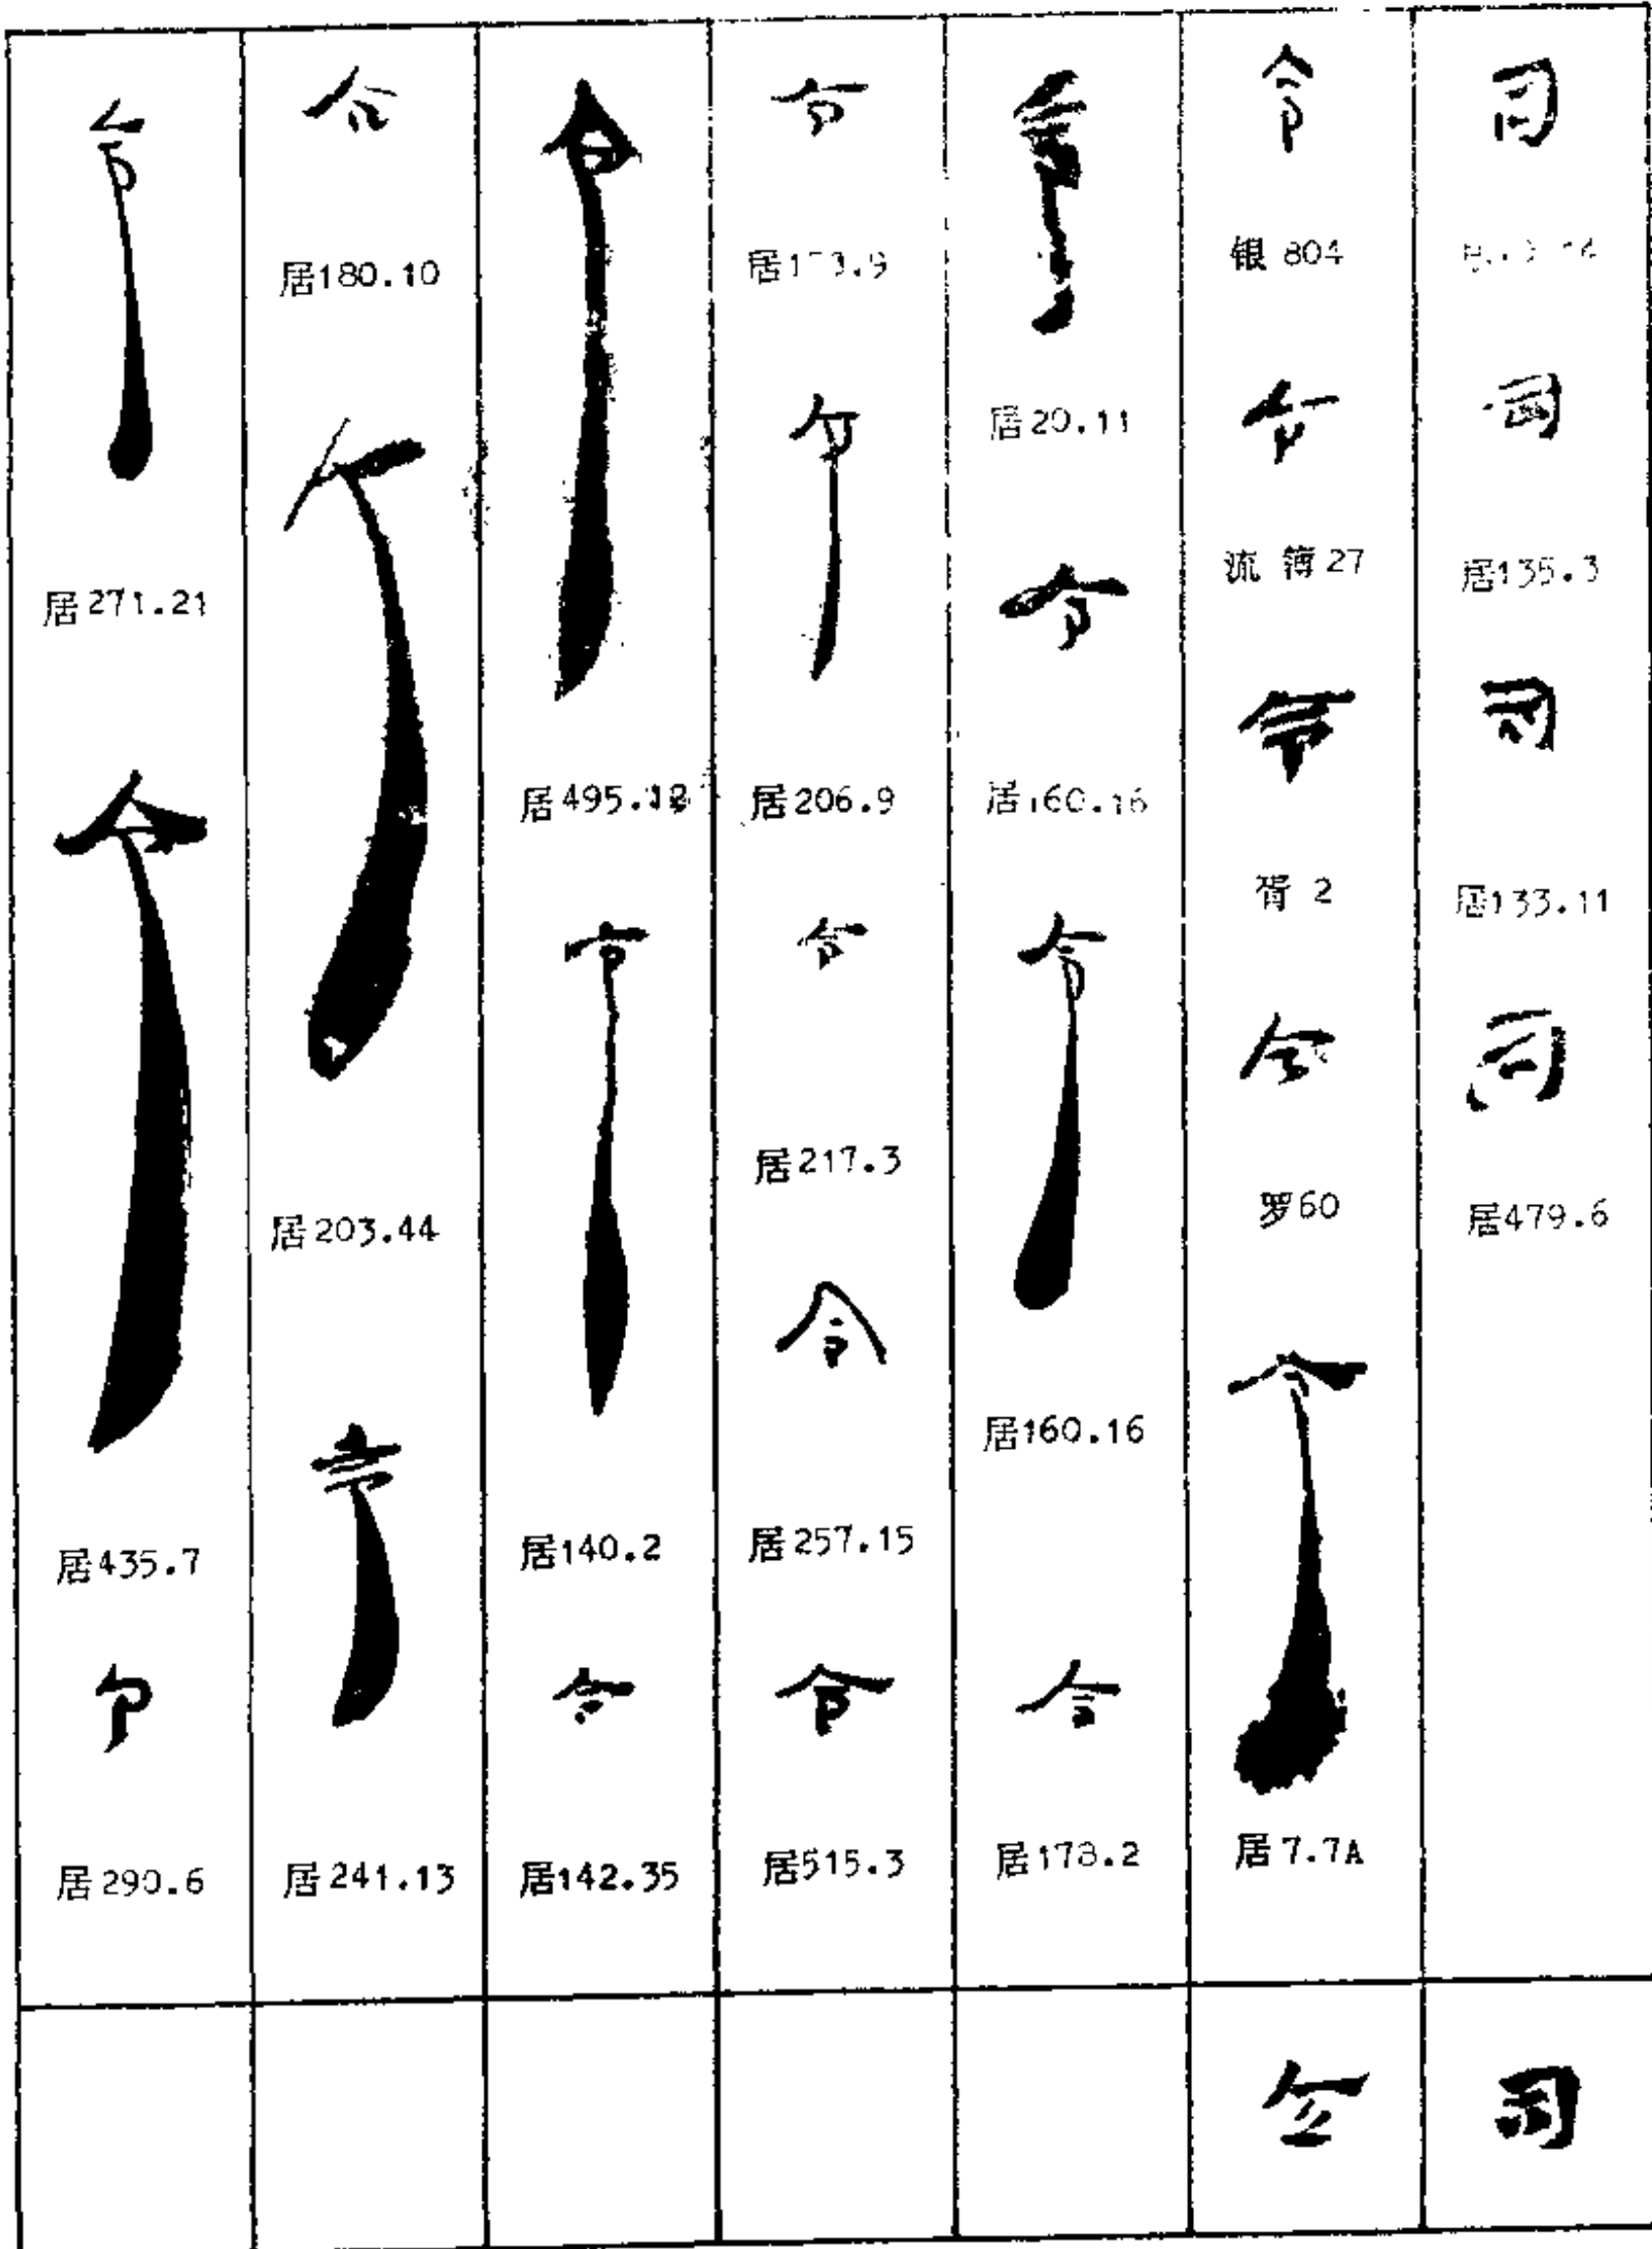 司
司
居135.3
司
居133.11
司
居479.6
司
令
银 804
令
流 簿 27
令
胥 2
令
罗60
令
居7.7A
令
居20.11
令
居160.16
令
居160.16
令
居178.2
令
令
居206.9
令
居217.3
令
居257.15
令
居515.3
令
令
居140.2
令
居142.35
令
居180.10
令
居203.44
令
居241.13
令
居271.21
令
居435.7
令
居290.6